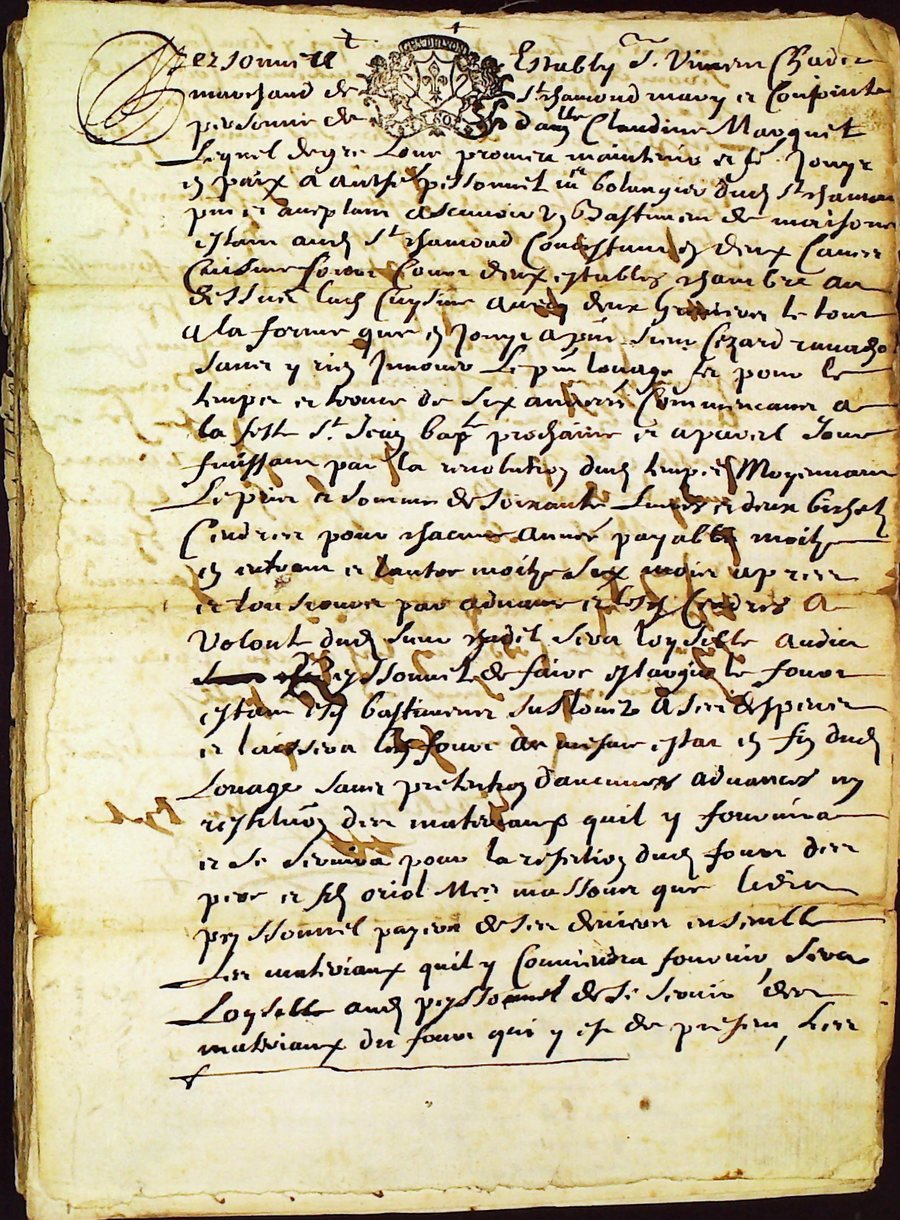 Personne{ll}e Estably Sr. Vincent Chadel
marchand de St chamond mary et Conjointe
personne de dalle Claudine Marquet
Lequel de gre Loue promect maintenir et fe Jouyr
en paix a anthe peyssonnel mr bolangier dud St chamond
pnt et aceptant ascavoir un Bastiment de maison
estant aud St chamond Consistant en deux Caves
Cuisine fouor Couor deux estables chambre au
dessus lad Cuysine avec deux greniers le tout
a la forme que en Jouyt a pnt sieur Cezard
sans y rien Innover Le pnt louage fet pour le
temps et terme de six années Commencant a
la feste St Jean bapte prochaine et a pareil Jour
finissant par la revolution dud temps Moyennant
Le prix et somme de soixante Livres et deux bichets
Cendres pour chacune année payable moitye
en entrant et lautre moitye six moix apres
et tousiours par advance et lesd Cendres a
Volonte dud sieur chadel sera loysible audict
peyssonnel de faire eslargir le fouor
estant esd bastiments sus louez a ses despens
et laissera led fouor au mesme estat en fin dud
Louage sans pretention daucunes advances ny
restituon des materiaux quil y fournira
et se servira pour la refection dud fouor des
pere et fils oriol Mes massons que ledict
peyssonnel payera de ses deniers ensemble
Les materiaux quil y Conviendra fournir, sera
Loysible aud peyssonnel de se servir des
materiaux du fouor qui y est de present, Les